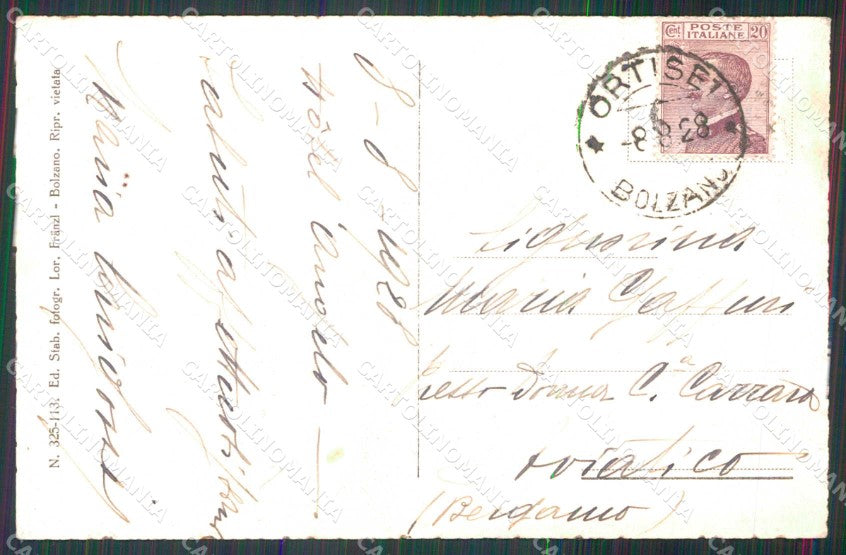 8-8-1928
Hôtel
Saluti affettuosi
Maria
N. 325-113. Ed. Stab. fotogr. Lor. Fränzl - Bolzano. Ripr. vietata
Cent POSTE ITALIANE 20
ORTISEI
-8.8.28
BOLZANO
Signorina
Maria Gaffuri
Presso Donna C.a Carrara
Aviatico
(Bergamo)
CARTOLINOMANIA